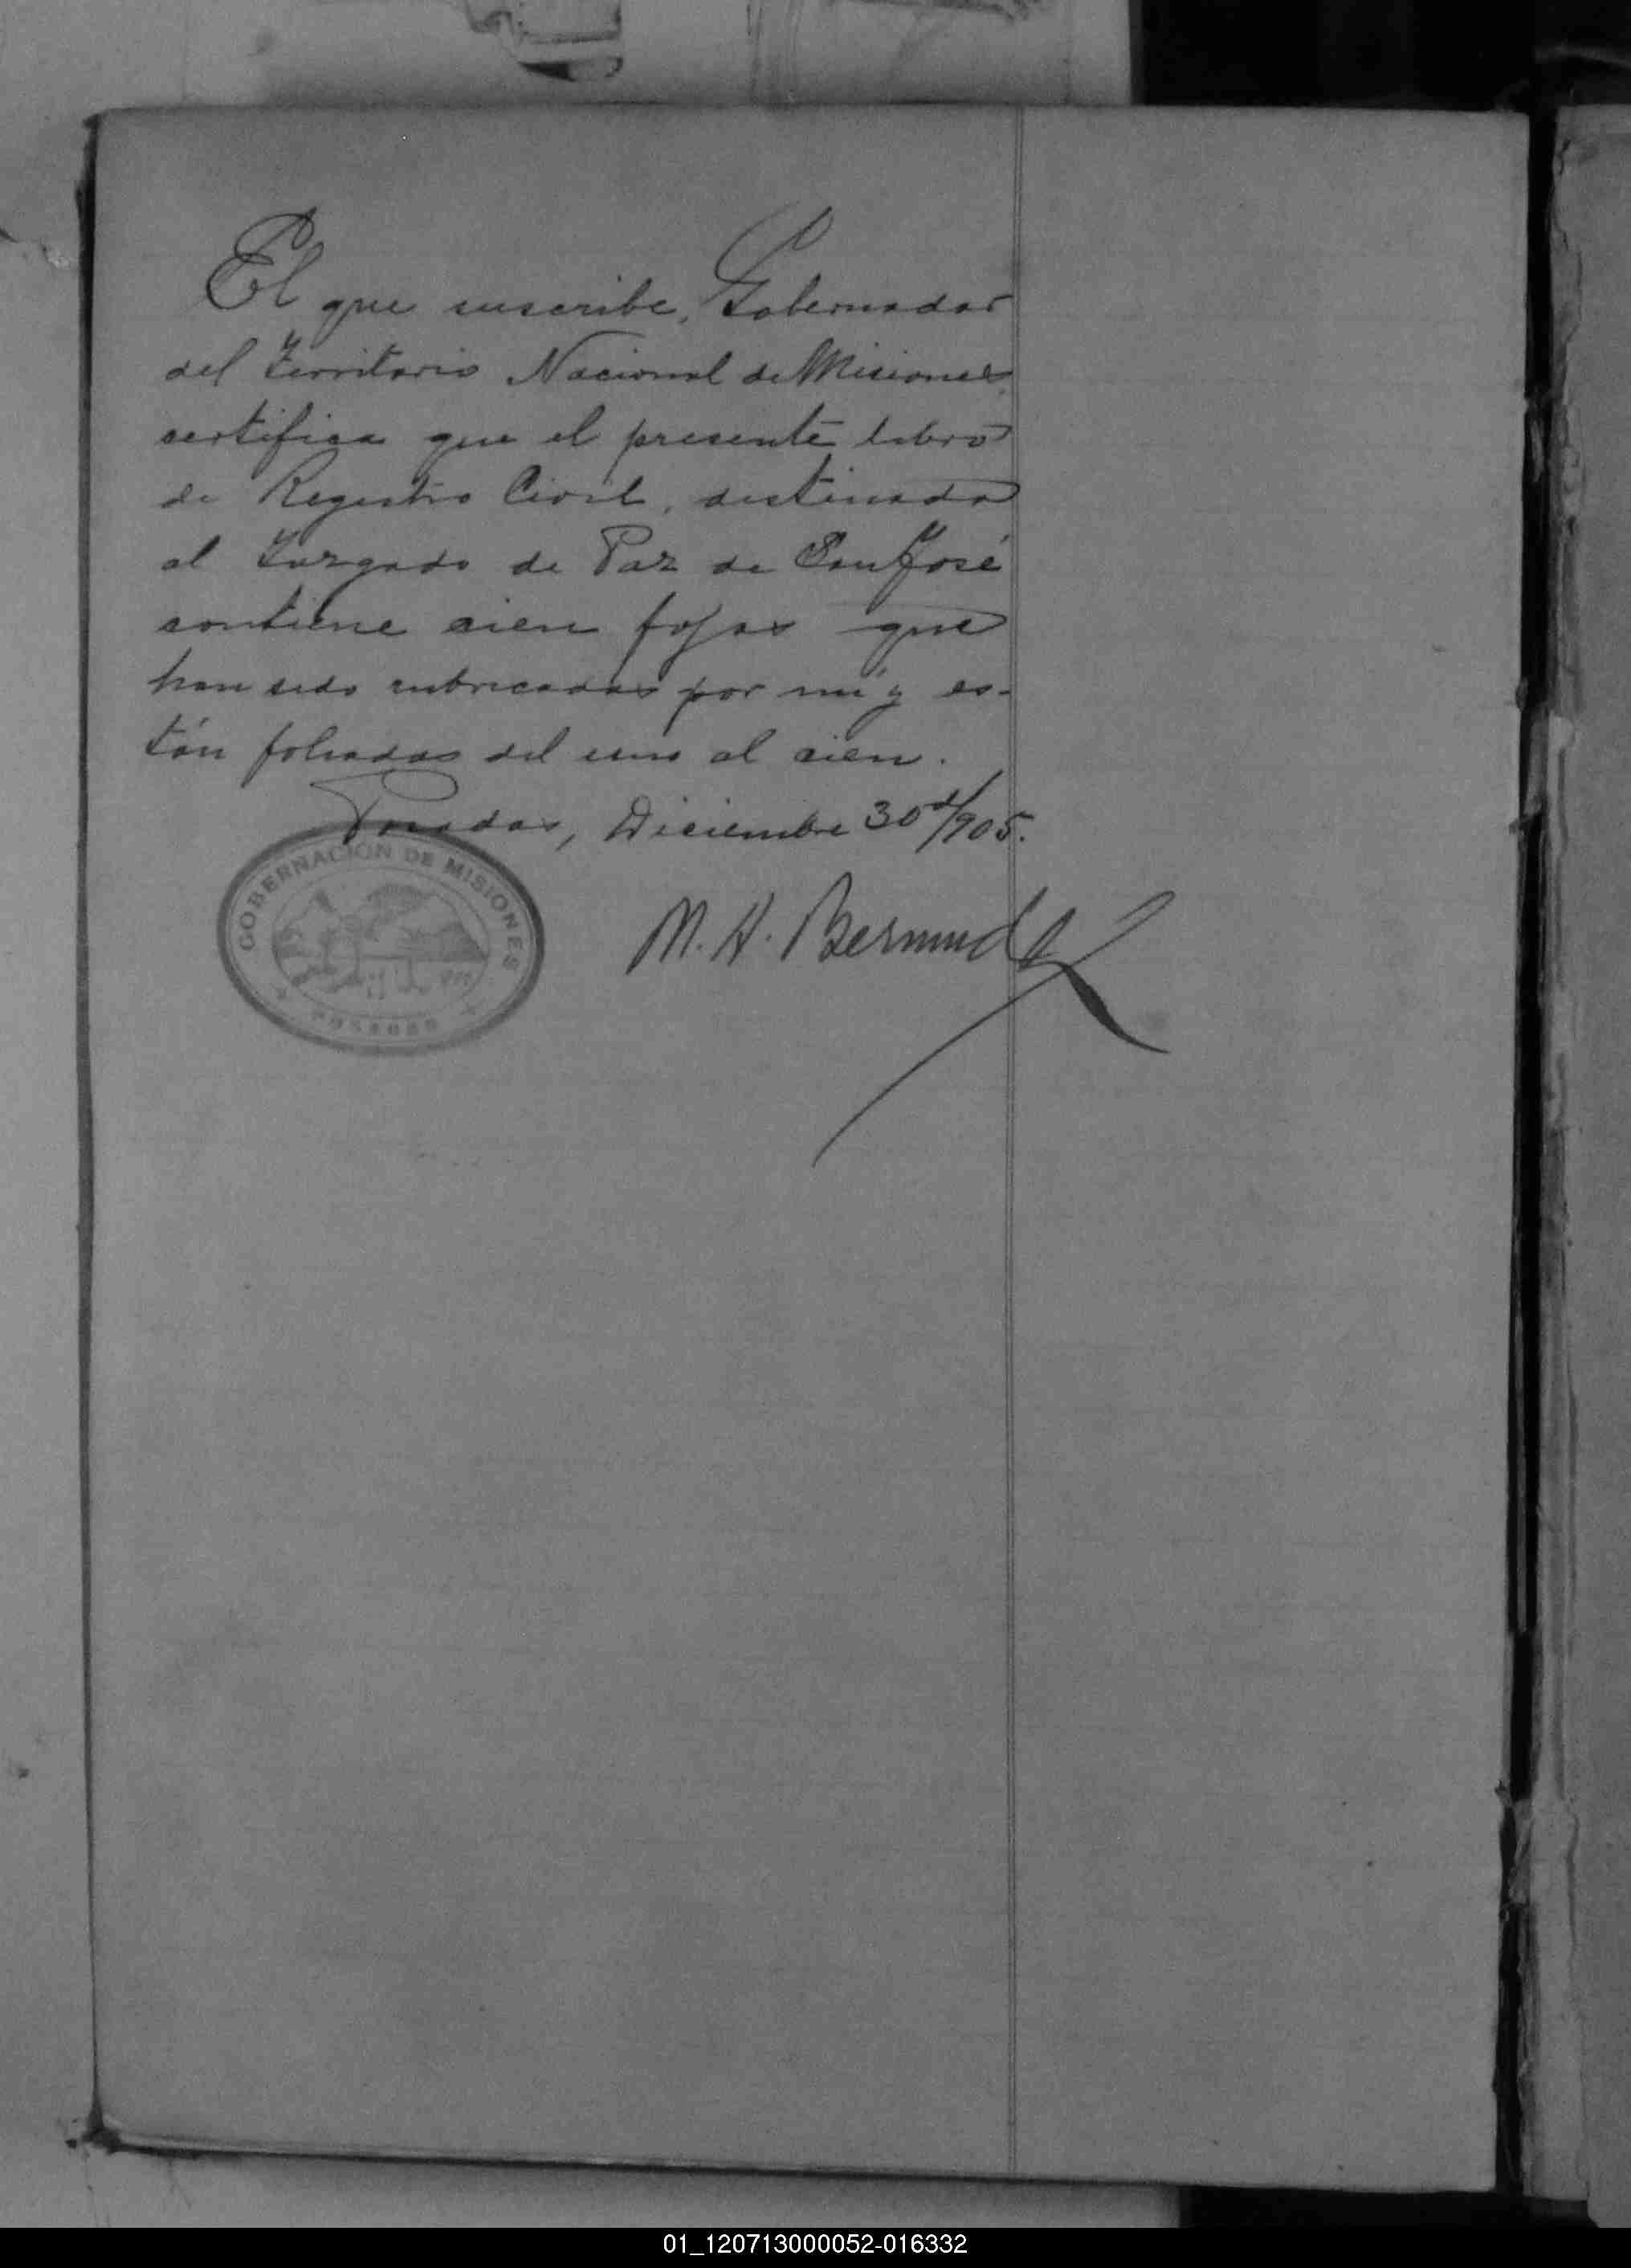 El que suscribe, Gobernador
del Territorio Nacional de Misiones
certifica que el presente libro
de Registro Civil, destinado
al Juzgado de Paz de San José
contiene cien fojas que
han sido rubricadas por mí y es-
tán foliadas del uno al cien.
Posadas, Diciembre 30 d/905.
GOBERNACION DE MISIONES
POSADAS
M. A. Bermudez
01_120713000052-016332